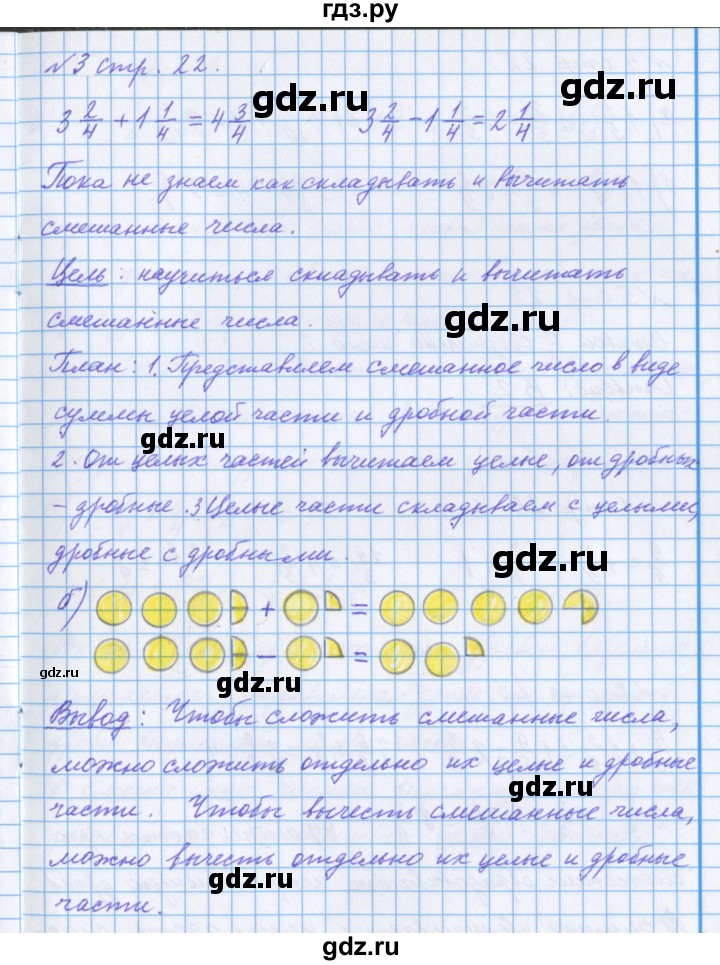 гдз.ру
№3 стр. 22.
3 2/4 + 1 1/4 = 4 3/4    3 2/4 - 1 1/4 = 2 1/4
Пока не знаем как складывать и вычитать
смешанные числа.
Цель: научиться складывать и вычитать
смешанные числа.
План: 1. Представляем смешанное число в виде
суммы целой части и дробной части.
2. От целых частей вычитаем целые, от дробных
- дробные. 3 Целые части складываем с целыми,
дробные с дробными.
б) + =
- =
Вывод: Чтобы сложить смешанные числа,
можно сложить отдельно их целые и дробные
части. Чтобы вычесть смешанные числа,
можно вычесть отдельно их целые и дробные
части.
gdz.ru
gdz.ru
gdz.ru
gdz.ru
gdz.ru
gdz.ru
gdz.ru
gdz.ru
gdz.ru
gdz.ru